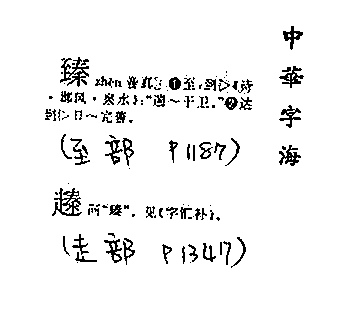 中華字海
臻 zhēn 音真 ❶至;到▷《诗
·邶风·泉水》:“遄～于卫。”❷达
到▷日～完善。
(至部 P1187)
𧽿 同“臻”。见《字汇补》。
(走部 P1347)